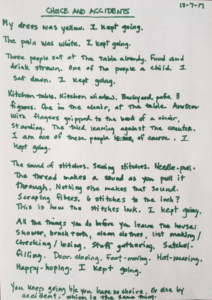 13-7-17
CHOICE AND ACCIDENTS
My dress was yellow. I kept going.
The pain was white. I kept going.
Three people sat at the table already. Food and
drink strewn, one of the people a child. I
sat down. I kept going.
Kitchen-table. Kitchen window. Backyard path. 3
figures. One in the chair, at the table. Another
with fingers gripped to the back of a chair,
standing. The third leaning against the counter.
I am one of these people, of course. I
kept going.
The sound of stitches. Sewing stitches. Needle-pull.
The thread makes a sound as you pull it
through. Nothing else makes that sound.
Scraping fibers, 6 stitches to the inch?
This is how the stitches look. I kept going.
All the things you do before you leave the house:
Shower, brush teeth, clean clothes, list making/
checking/losing. Stuff gathering. Satchel-
filling. Door closing. Foot-moving. Hat-wearing.
Happy-hoping. I kept going.
You keep going til you have no choice, or die by
accident, which is the same thing.